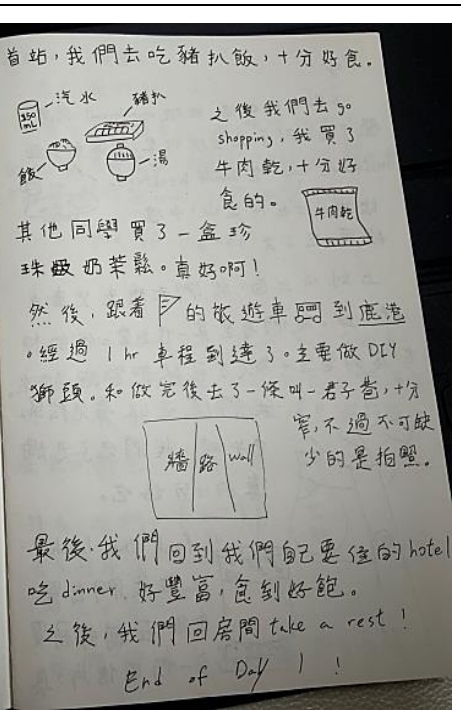 首站,我們去吃豬扒飯,十分好食。
汽水
豬扒
350 mL
飯
湯
之後我們去 go
shopping,我買了
牛肉乾,十分好
食的。
牛肉乾
其他同學買了一盒珍
珠奶茶鬆。真好啊!
然後,跟着 的旅遊車 到鹿港
。經過 1 hr 車程到達了。主要做 DIY
獅頭。和做完後去了一條叫一君子巷,十分
窄,不過不可缺
少的是拍照。
牆 路 Wall
最後,我們回到我們自己要住的 hotel
吃 dinner 好豐富,食到好飽。
之後,我們回房間 take a rest !
End of Day 1 !